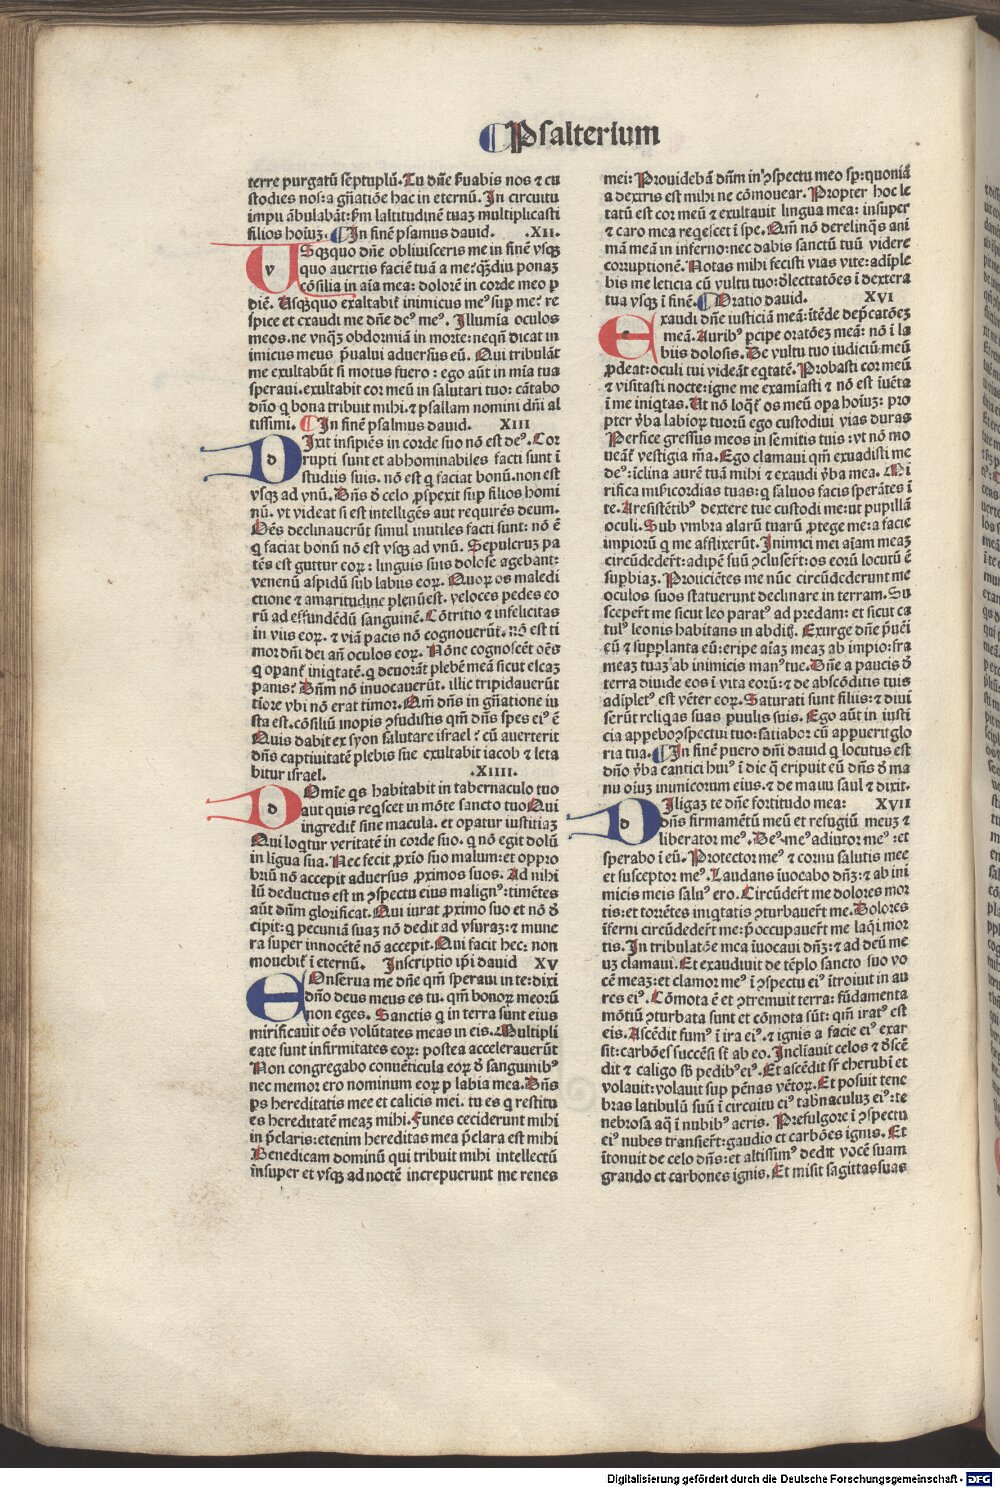 Psalterium
terre purgatū sēptuplū. Tu dñe ẜuabis nos ⁊ cu
stodies nos: a gñatiōe hac in eternū. In circuitu
impii ābulabāt: ẜm laltitudinē tuaȝ multiplicasti
filios hoiuȝ. In finē psamus dauid. .XII.
VSqȝquo dñe obliuisceris me in finē vsqȝ
quo auertis faciē tuā a me? qȝdiu ponaȝ
cōsilia in aīa mea: dolorē in corde meo p
diē. Usqȝquo exaltabit inimicus meꝰ sup me? re
spice et exaudi me dñe deꝰ meꝰ. Illumia oculos
meos. ne vnqȝ obdormiā in morte: neqñ dicat in
imicus meus p̄ualui aduersus eū. Qui tribulāt
me exultabūt si motus fuero: ego aūt in mia tua
speraui. exultabit cor meū in salutari tuo: cātabo
dño q bona tribuit mihi. ⁊ psallam nomini dñi al
tissimi. In finē psalmus dauid. XIII
DIxit insipiēs in corde suo nō est deꝰ. Cor
rupti sunt et abhominabiles facti sunt ī
studiis suis. nō est q faciat bonū. non est
vsqȝ ad vnū. Dñs đ celo ꝓspexit sup filios homi
nū. vt videat si est intelligēs aut requirēs deum.
Oēs declinauerūt simul inutiles facti sunt: nō ē
q faciat bonū nō est vsqȝ ad vnū. Sepulcruȝ pa
tēs est guttur eoꝝ: linguis suis dolose agebant:
venenū aspidū sub labiis eoꝝ. Quoꝝ os maledi
ctione ⁊ amaritudine plenūest. veloces pedes eo
rū ad effundēdū sanguinē. Cōtritio ⁊ infelicitas
in viis eoꝝ. ⁊ viā pacis nō cognouerūt. nō est ti
mor dñi dei añ oculos eoꝝ. Nōne cognoscēt oēs
q opant̄ iniqtatē. q deuorāt plebē meā sicut escaȝ
panis? Dñm nō inuocauerūt. illic tripidauerūt
tiore vbi nō erat timor. Qm̄ dñs in gñatione iu
sta est. cōsiliū inopis ꝯsudistis qm̄ dñs spes eiꝰ ē
Quis dabit ex syon salutare israel? cū auerterit
dñs captiuitatē plebis sue exultabit iacob ⁊ leta
bitur israel. .XIIII.
DOmīe qs habitabit in tabernaculo tuo
aut quis reqȩscet in mōte sancto tuo Qui
ingredit̄ sine macula. et opatur iustitiaȝ
Qui loqtur veritatē in corde suo. q nō egit dolū
in līgua sua. Nec fecit ꝓxīo suo malum: et oppro
briū nō accepit aduersus ꝓximos suos. Ad nihi
lū deductus est in ꝯspectu eius malignꝰ: timētes
aūt dñm glorificat. Qui iurat ꝓximo suo et nō đ
cipit: q pecuniā suaȝ nō dedit ad vsuraȝ: ⁊ mune
ra super innocētē nō accepit. Qui facit hec: non
mouebit̄ ī eternū. Inscriptio ip̄i dauid XV
COnserua me dñe qm̄ speraui in te: dixi
dño deus meus es tu. qm̄ bonoꝝ meorū
non eges. Sanctis q in terra sunt eius
mirificauit oēs volūtates meas in eis. Multipli
cate sunt infirmitates eoꝝ: postea accelerauerūt
Non congregabo conuēticula eoꝝ đ sanguinibꝰ
nec memor ero nominum eoꝝ p labia mea. Dñs
ps hereditatis mee et calicis mei. tu es q restitu
es hereditatē meaȝ mihi. Funes ceciderunt mihi
in p̄claris: etenim hereditas mea p̄clara est mihi
Benedicam dominū qui tribuit mihi intellectū
insuper et vsqȝ ad noctē increpuerunt me renes
mei: Prouidebā dñm in ꝯspectu meo sp: quoniā
a dextris est mihi ne cōmouear. Propter hoc le
tatū est cor meū ⁊ exultauit lingua mea: insuper
⁊ caro mea reqescet ī spe. Qm̄ nō derelinqs ani
mā meā in inferno: nec dabis sanctū tuū videre
corruptionē. Notas mihi fecisti vias vite: adīple
bis me leticia cū vultu tuo: đlecttatōes ī dextera
tua vsqȝ ī finē. Oratio dauid. XVI
Exaudi dñe iusticiā meā: ītēde dep̄catōeȝ
meā. Auribꝰ pcipe oratōeȝ meā: nō ī la
biis dolosis. De vultu tuo iudiciū meū
ꝓdeat: oculi tui videāt eqtatē. Probasti cor meū
⁊ visitasti nocte: igne me examīasti ⁊ nō est īuēta
ī me iniqtas. Ut nō loqt̄ os meū opa hoiuȝ: pro
pter v̄ba labioꝝ tuorū ego custodiui vias duras
Perfice gressus meos in semitis tuis: vt nō mo
ueāt vestigia m̄a. Ego clamaui qm̄ exaudisti me
deꝰ: īclina aurē tuā mihi ⁊ exaudi v̄ba mea. Mi
rifica misicordias tuas: q saluos facis sperātes ī
te. A resistētibꝰ dextere tue custodi me: ut pupillā
oculi. Sub vmbra alarū tuarū ꝓtege me: a facie
impiorū q me afflixerūt. Inimici mei aīam meaȝ
circūdedert̄: adipē suū ꝯclusert̄: os eorū locutū ē
supbiaȝ. Proiiciētes me nūc circūdederunt me
oculos suos statuerunt declinare in terram. Su
scepert̄ me sicut leo paratꝰ ad predam: et sicut ca
tulꝰ leonis habitans in abditꝭ. Exurge dñe p̄uēi
eū ⁊ supplanta eū: eripe aīaȝ meaȝ ab impio: fra
meaȝ tuaȝ ab inimicis manꝰ tue. Dñe a paucis đ
terra diuide eos ī vita eorū: ⁊ de abscōditis tuis
adīpletꝰ est vēter eoꝝ. Saturati sunt filiis: ⁊ diui
serūt reliqas suas puulis suis. Ego aūt in iusti
cia appebo ꝯspectui tuo: satiabor cū appuerit glo
ria tua. In finē puero dñi dauid q locutus est
dño v̄ba cantici huiꝰ ī die q̄ eripuit eū dñs đ ma
nu oīuȝ inimicorum eius. ⁊ de manu saul ⁊ dixit.
DIligaȝ te dñe fortitudo mea: XVII
dñs firmamētū meū et refugiū meuȝ ⁊
liberator meꝰ. Deꝰ meꝰ adiutor meꝰ: et
sperabo ī eū. Protector meꝰ ⁊ cornu salutis mee
et susceptor meꝰ. Laudans īuocabo dñȝ: ⁊ ab ini
micis meis saluꝰ ero. Circūdert̄ me dolores mor
tis: et torrētes iniqtatis ꝯturbauert̄ me. Dolores
īferni circūdedert̄ me: p̄occupauert̄ me laqi mor
tis. In tribulatōe mea īuocaui dñȝ: ⁊ ad deū me
uȝ clamaui. Et exaudiuit de tēplo sancto suo vo
cē meaȝ: et clamor meꝰ ī ꝯspectu eiꝰ ītroiuit in au
res eiꝰ. Cōmota ē et ꝯtremuit terra: fūdamenta
mōtiū ꝯturbata sunt et cōmota sūt: qm̄ iratꝰ est
eis. Ascēdit fumꝰ ī ira eiꝰ. ⁊ ignis a facie eiꝰ exar
sit: carbōes succēsi st̄ ab eo. Inclīauit celos ⁊ đscē
dit ⁊ caligo sb̄ pedibꝰ eiꝰ. Et ascēdit sr̄ cherubī et
volauit: volauit sup pēnas vētoꝝ. Et posuit tene
bras latibulū suū ī circuitu eiꝰ tabnaculuȝ eiꝰ: te
nebrosa aq̄ ī nubibꝰ aeris. Prefulgore ī ꝯspectu
eiꝰ nubes transiert̄: gaudio et carbōes ignis. Et
ītonuit de celo dñs: et altissimꝰ dedit vocē suam
grando et carbones ignis. Et misit sagittas suas
Digitalisierung gefördert durch die Deutsche Forschungsgemeinschaft - DFG